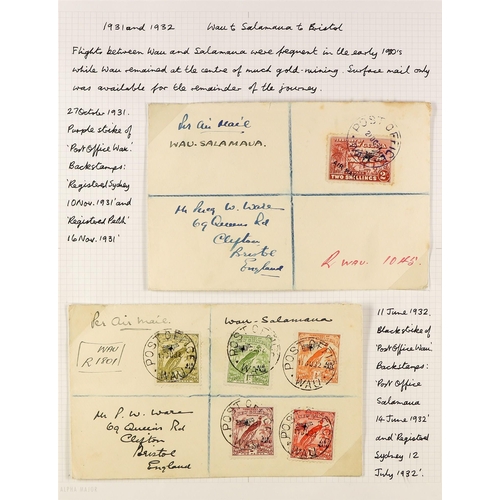 1931 and 1932 Wau to Salamaua to Bristol
Flights between Wau and Salamaua were fequent in the early 1930's
while Wau remained at the centre of much gold-mining. Surface mail only
was available for the remainder of the journey.
27 October 1931.
Purple strike of
'Post Office Wau.'
Backstamps:
'Registered Sydney
10 Nov. 1931' and
'Registered Perth'
16 Nov. 1931'
Per Air Mail
WAU-SALAMAUA.
Mr Percy W. Ware
69 Queens Rd
Clifton
Bristol
England
POST OFFICE
AIR MAIL
TWO SHILLINGS
2
R WAU. 1045.
Per Air Mail
Wau-Salamaua
WAU
R 1801
Mr P. W. Ware
69 Queens Rd
Clifton
Bristol
England
POST OFFICE
WAU
POST OFFICE
WAU
POST OFFICE
WAU
POST OFFICE
WAU
POST OFFICE
WAU
11 June 1932.
Black strike of
'Post Office Wau.'
Backstamps:
'Post Office
Salamaua
14 June 1932'
and 'Registered
Sydney 12
July 1932'.